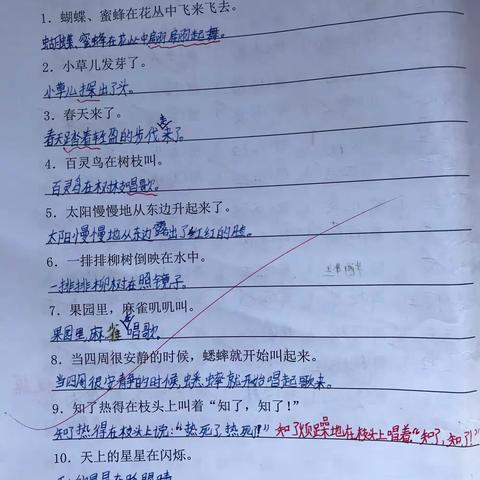 1. 蝴蝶、蜜蜂在花丛中飞来飞去。
蝴蝶、蜜蜂在花丛中翩翩起舞。
2. 小草儿发芽了。
小草儿探出了头。
3. 春天来了。
春天踏着轻盈的步伐来了。
4. 百灵鸟在树枝叫。
百灵鸟在树枝唱歌。
5. 太阳慢慢地从东边升起来了。
太阳慢慢地从东边露出了红红的脸。
6. 一排排柳树倒映在水中。
一排排柳树在照镜子。
7. 果园里，麻雀叽叽叫。
果园里,麻雀唱歌。
8. 当四周很安静的时候，蟋蟀就开始叫起来。
当四周很安静的时候,蟋蟀就开始唱起歌来。
9. 知了热得在枝头上叫着“知了，知了！”
知了热得在枝头上说：“热死了,热死了!” 知了烦躁地在枝头上唱着“知了,知了!”
10. 天上的星星在闪烁。